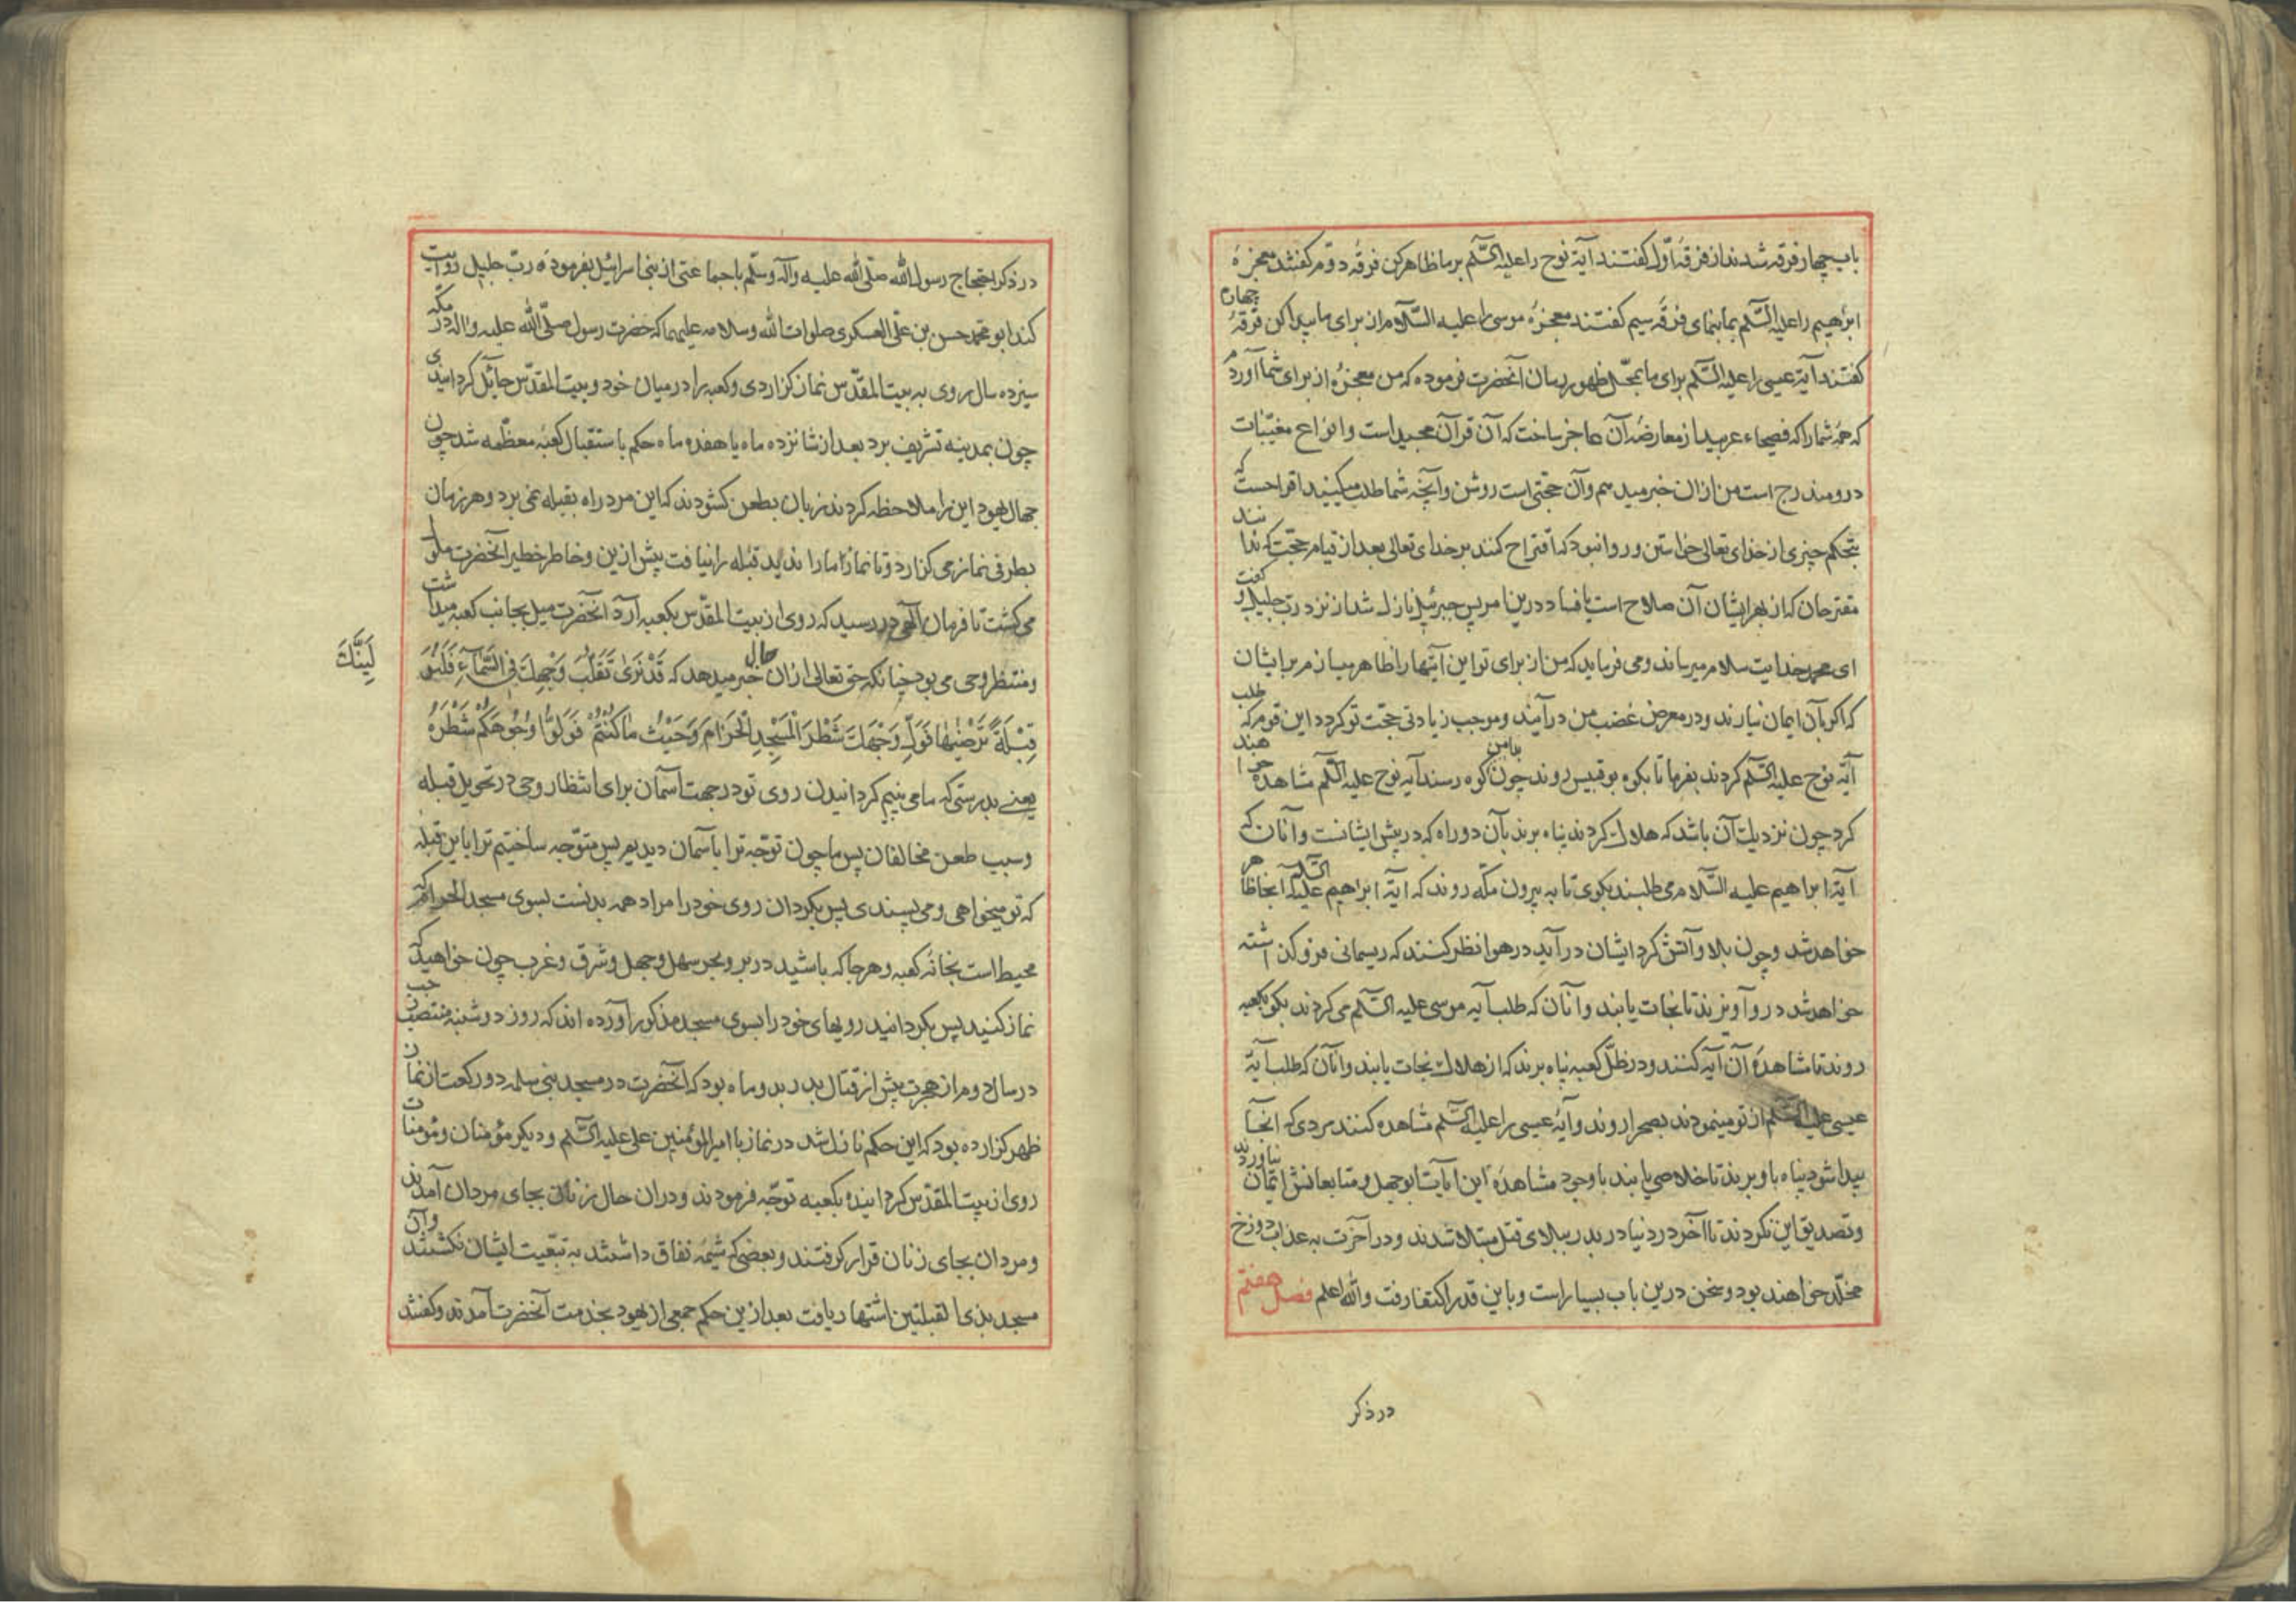 باب چهار فرقه شدند از فرقهٔ اوّل گفتند آیة نوح را علیه السّلم بر ما ظاهر کن فرقهٔ دوم گفتند معجزهٔ
ابرٰهیم را علیه السّلم بما بنمای فرقهٔ سیم گفتند معجزهٔ موسی را علیه السّلام از برای ما پیدا کن فرقهٔ چهارم
گفتند آیة عیسی را علیه السّلم برای ما بمحلّ ظهور رسان آنحضرت فرموده که من معجزهٔ از برای شما آوردم
که همهٔ شما را که فصحاء عربید از معارضهٔ آن عاجز ساخت که آن قرآن مجید است و انواع مغیّبات
درو مندرج است من ازان خبر میدهم و آن حجتی است روشن و آنچه شما طلب میکنید اقتراحست که
بتحکم چیزی از خدای تعالی خواستن و روا نبود که اقتراح کنند بر خدای تعالی بعد از قیام حجّت که ندانند
مقترحان که از بهر ایشان آن صلاح است یا فساد درین امر پس جبرئیل نازل شد از نزد ربّ جلیل و گفت
ای محمد خدایت سلام میرساند و می فرماید که من از برای تو این آیتها را ظاهر میسازم بر ایشان
که اگر بآن ایمان نیارند و در معرض غضب من درآیند و موجب زیادتی حجّت تو گردد این قوم که طلب
آیّه نوح علیه السّلم کردند بفرما تا بکوه بوقبیس روند چون بدامن کوه رسند آیه نوح علیه السّلم مشاهده خواهند
کرد چون نزدیک آن باشد که هلاک گردند پناه برند بآن دو راه که در پیش ایشانست و آنان که
آیة ابراهیم علیه السّلام می طلبند بکوی تا به بیرون مکّه روند که آیة ابراهیم علیه السّلم آنجا ظاهر
خواهد شد و چون بلا و آتش گرد ایشان درآید در هوا نظر کنند که ریسمانی فروگذاشته
خواهد شد درو آویزند تا نجات یابند و آنان که طلب آیه موسی علیه السّلم می کردند بکو بکعبه
روند تا مشاهدهٔ آن آیه کنند و در ظلّ کعبه پناه برند که از هلاک نجات یابند و آنان که طلب آیة
عیسی علیه السّلم از تو مینمودند بصحرا روند و آیهٔ عیسی را علیه السّلم مشاهده کنند مردی که آنجا
پیدا شود پناه باو برند تا خلاصی یابند با وجود مشاهدهٔ این آیات ابوجهل و متابعانش ایمان نیاوردند
و تصدیق این نکردند تا آخر در دنیا در بدر ببلای قتل مبتلا شدند و در آخرت به عذاب دوزخ
مخلّد خواهند بود و سخن درین باب بسیار است و باین قدر اکتفا رفت والله اعلم فصل هفتم
در ذکر
در ذکر احتجاج رسول الله صلّی الله علیه وآله وسلّم با جماعتی از بنی اسرائیل بفرمودهٔ ربّ جلیل روایت
کند ابو محمد حسن بن علی العسکری صلوات الله وسلامه علیهما که حضرت رسول صلّی الله علیه واله در مکّه
سیزده سال روی به بیت المقدّس نماز گزاردی و کعبه را در میان خود و بیت المقدّس حایل گردانیدی
چون بمدینه تشریف برد بعد از شانزده ماه یا هفده ماه حکم باستقبال کعبهٔ معظّمه شد چون
جهال یهود این را ملاحظه کردند زبان بطعن گشودند که این مرد راه بقبله نمی برد و هر زمان
بطرفی نماز می گزارد و تا نماز ما را ندید قبله را نیافت پیش ازین و خاطر خطیر آنحضرت ملول
می گشت تا فرمان الهی در رسید که روی از بیت المقدّس بکعبه آرد آنحضرت میل بجانب کعبه میداشت
و منتظر وحی می بود چنانکه حق تعالی ازان حال خبر میدهد که قَدْ نَرَىٰ تَقَلُّبَ وَجْهِكَ فِي السَّمَآءِ فَلَنُوَ
لِيَنَّكَ
قِبْلَةً تَرْضٰيهَا فَوَلِّ وَجْهَكَ شَطْرَ الْمَسْجِدِ الْحَرَامِ وَحَيْثُ مَا كُنْتُمْ فَوَلُّوا وُجُوهَكُمْ شَطْرَهُ
یعنی بدرستی که ما می بینیم گردانیدن روی تو در جهت آسمان برای انتظار وحی در تحویل قبله
و سبب طعن مخالفان پس ما چون توجّه ترا بآسمان دیدیم پس متوّجه ساختیم ترا باین قبله
که تو میخواهی و می پسندی پس بگردان روی خود را مراد همه بدنست بسوی مسجد الحرام که
محیط است بخانهٔ کعبه و هرجا که باشید در بر و بحر سهل و جبل و شرق و غرب چون خواهید که
نماز کنید پس بگردانید رویهای خود را بسوی مسجد مذکور آورده اند که روز دوشنبه منتصف رجب
در سال دوم از هجرت پیش از قتال بدر بدو ماه بود که آنحضرت در مسجد بنی سلمه دو رکعت از نماز
ظهر گزارده بود که این حکم نازل شد در نماز با امیرالمؤمنین علی علیه السّلم و دیگر مؤمنان و مؤمنات
روی از بیت المقدّس گردانیده بکعبه توجّه فرمودند و دران حال زنان بجای مردان آمدند
و مردان بجای زنان قرار گرفتند و بعضی که شیمهٔ نفاق داشتند به تبعیت ایشان نگشتند و آن
مسجد بذی القبلتین اشتهار یافت بعد ازین حکم جمعی از یهود بخدمت آنحضرت آمدند و گفتند